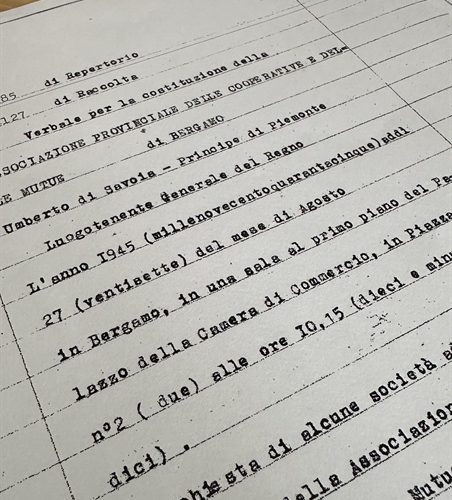 85 di Repertorio
1127 di Raccolta
Verbale per la costituzione della
SSOCIAZIONE PROVINCIALE DELLE COOPERATIVE E DEL-
LE MUTUE di BERGAMO
Umberto di Savoia - Principe di Piemonte
Luogotenente Generale del Regno
L'anno I945 (millenovecentoquarantacinque)addì
27 (ventisette) del mese di Agosto
in Bergamo, in una sala al primo piano del Pa-
lazzo della Camera di Commercio, in Piazza
n°2 ( due) alle ore IO,15 (dieci e minu
dici) .
hiesta di alcune società a
ella Associazion
Mutu